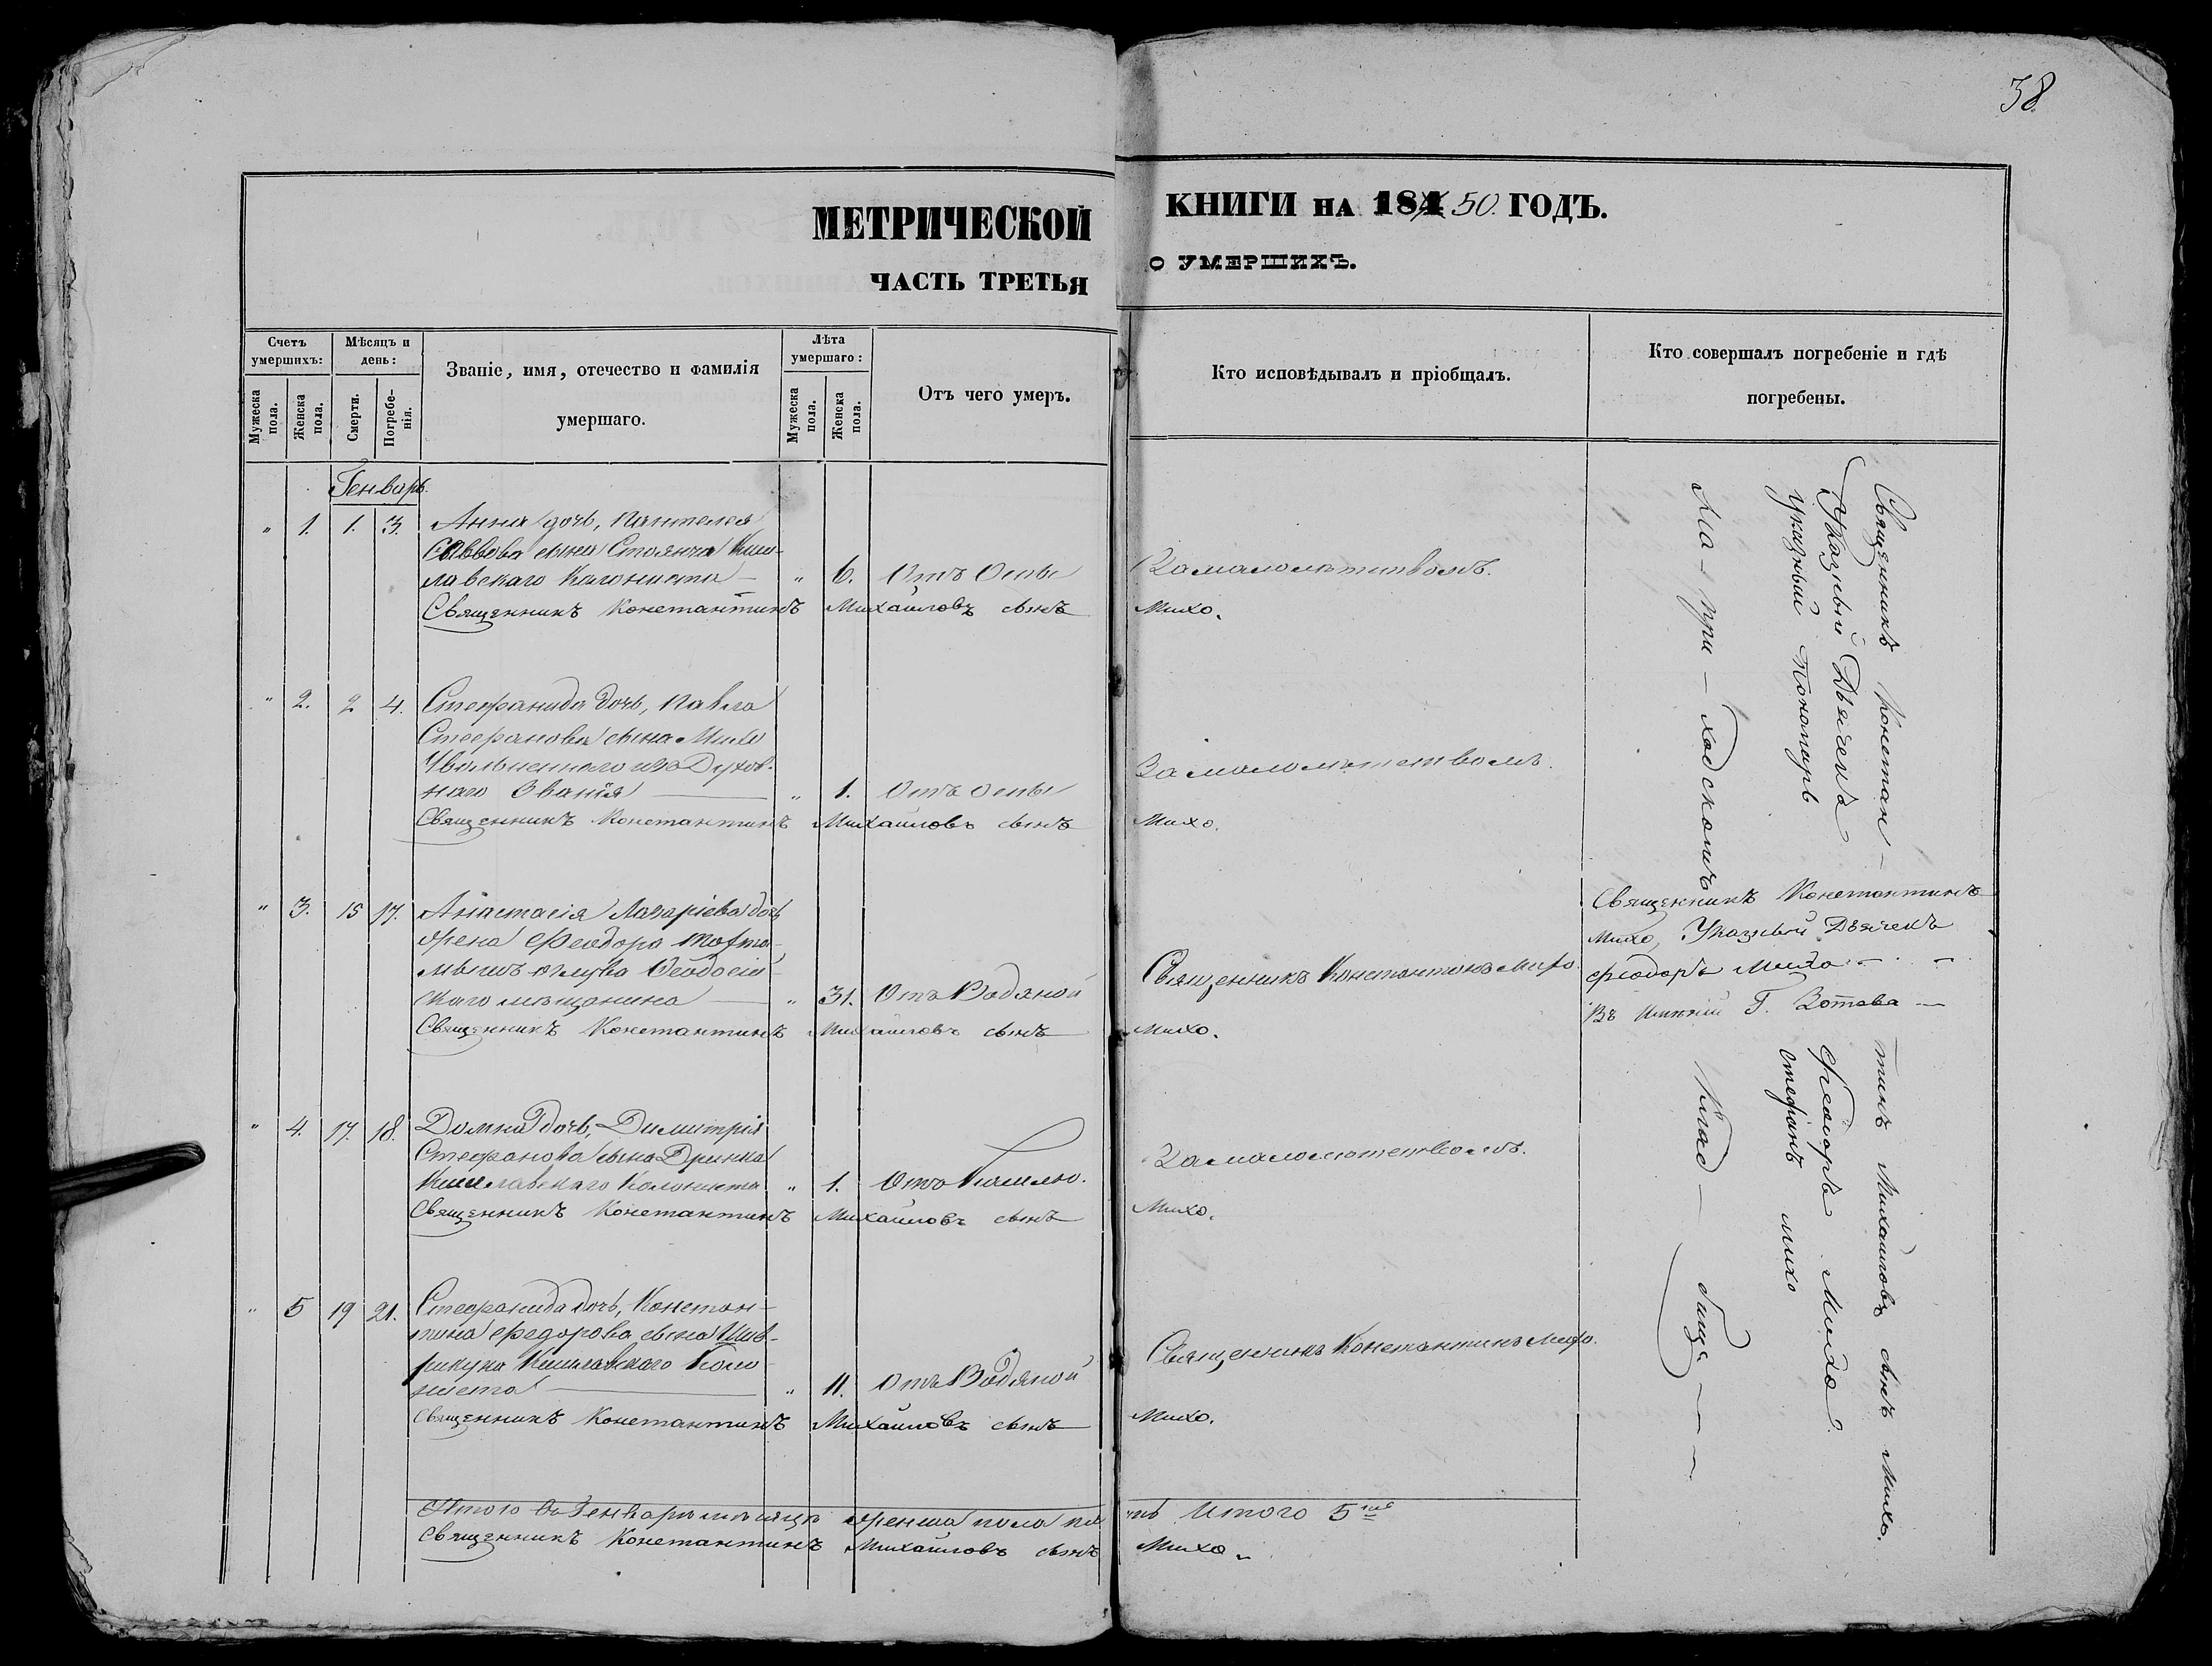 38.
МЕТРИЧЕСКОЙ КНИГИ НА 184 50. ГОДЪ.
ЧАСТЬ ТРЕТЬЯ О УМЕРШИХЪ.
Счетъ умершихъ:
Мужеска пола.
Женска пола.
Мѣсяцъ и день:
Смерти.
Погребе-
нія.
Званіе, имя, отечество и фамилія
умершаго.
Лѣта умершаго:
Мужеска пола.
Женска пола.
Отъ чего умеръ.
Кто исповѣдывалъ и пріобщалъ.
Кто совершалъ погребеніе и гдѣ
погребены.
Генварь.
" 1. 1. 3. Анна дочь, Пантелея
Саввова сына Стоянча Киш-
лавскаго Колониста — " 6. Отъ Оспы За малолѣтствомъ.
Священникъ Константинъ Михайловъ сынъ Михо.
" 2. 2 4. Стефанида дочь, Павла
Стефанова сына Михо
Уволненнаго изъ Духов-
наго Званія — " 1. Отъ Оспы За малолѣтствомъ.
Священникъ Константинъ Михайловъ сынъ Михо.
" 3. 15 17. Анастасія Лазаріева дочь
жена Феодора
Феодосій-
скаго мѣщанина — " 31. Отъ Водяной Священникъ Константинъ Михо.
Священникъ Константинъ Михайловъ сынъ Михо.
Священникъ Константинъ
Михо, Указный Дьячекъ
Феодоръ Михо — —
Въ Имѣніи Г. Зотова —
" 4. 17. 18. Домна дочь, Димитрія
Стефанова сына Дринка
Кишлавскаго Колониста " 1. Отъ Кашлю. За малолѣтствомъ.
Священникъ Константинъ Михайловъ сынъ Михо.
" 5 19 21. Стефанида дочь, Констан-
тина Федорова сына
Кишлавскаго Коло-
ниста — " 11. Отъ Водяной Священникъ Константинъ Михо.
Священникъ Константинъ Михайловъ сынъ Михо.
Итого въ Генварѣ мѣсяцѣ женска пола пять Итого 5
Священникъ Константинъ Михайловъ сынъ Михо.
Священникъ Констан- тинъ Михайловъ сынъ Михо.
Указный Дьячекъ Феодоръ Михо
Указный Пономарь Стефанъ Михо
На - при - ходскомъ Клад — бищѣ — — —